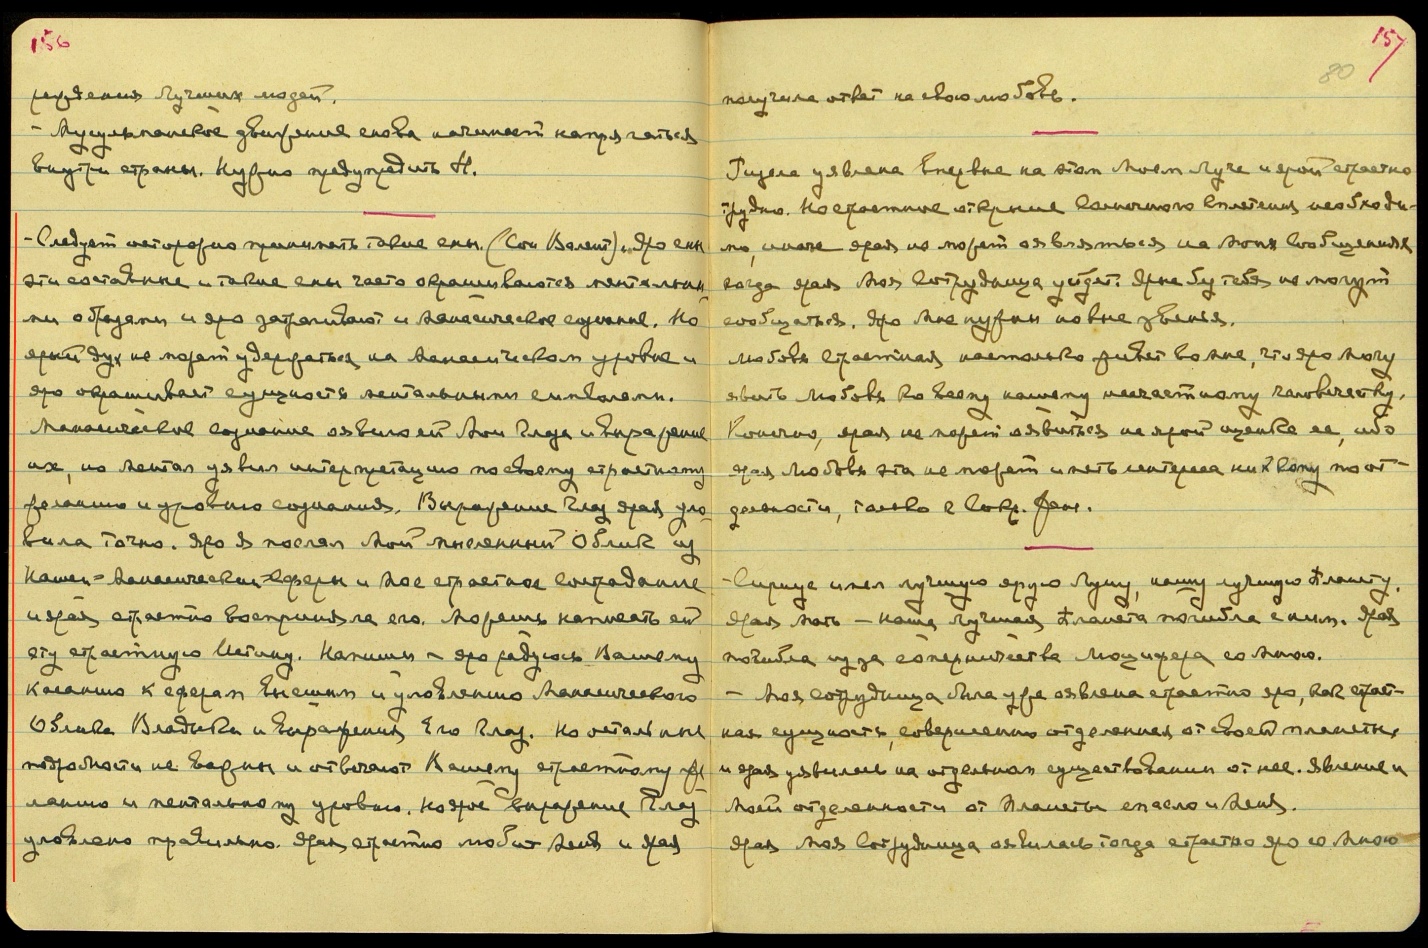 156
рождения Лучших людей.
- Мусульманское движение снова начинает напрягаться
внутри страны. Нужно предупредить Н.
- Следует осторожно принимать такие сны. (Сон Валент) Яро сны
эти составные и такие сны часто окрашиваются ментальны-
ми образами и яро затрагивают и Манасическое сознание. Но
ярый дух не может удержаться на Манасическом уровне и
яро окрашивает сущность ментальными символами.
Манасическое сознание явило ей Мои Глаза и Выражение
их, но ментал уявил интерпретацию по своему страстному
желанию и уровню сознания. Выражение Глаз ярая уло-
вила точно. Яро Я послал Мой мысленный Облик из
Нашей Манасической Сферы и Мое страстное Сострадание
и ярая страстно восприняла его. Можешь написать ей
эту страстную Истину. Напиши - яро радуюсь Вашему
касанию к сферам высшим и уловлению Манасического
Облика Владыки и Выражения Его Глаз. Но остальные
подробности не важны и отвечают Вашему страстному же-
ланию и ментальному уровню. Но ярое выражение Глаз
уловлено правильно. Ярая страстно любит Меня и ярая
157
80
получила ответ на свою любовь.
уявлена Впервые на этом Моем Луче и ярой страстно
трудно. Но страстное открытие Солнечного Сплетения необходи-
мо, иначе ярая не может являться на Моих Сообщениях
когда ярая Моя Сотрудница уйдет. Ярые без тебя не могут
сообщаться. Яро Мне нужны новые звенья.
Любовь страстная настолько живет во мне, что яро могу
явить Любовь ко всему нашему несчастному человечеству.
Конечно, ярая не может явиться на ярой оценке ее, ибо
ярая Любовь эта не может иметь интереса ни к кому по от-
дельности, только с Сокр. Жен.
- Сириус имел лучшую ярую Луну, нашу лучшую Планету.
Ярая Мать - наша Лучшая Планета погибла с ним. Ярая
погибла из за соперничества Люцифера со Мною.
- Моя Сотрудница была уже явлена страстно яро, как страст-
ная сущность, совершенно отделенная от своей планеты,
и ярая уявилась на отдельном существовании от нее. Явление и
Моей отделенности от Планеты спасло и Меня.
Ярая Моя Сотрудница явилась тогда страстно яро со Мною